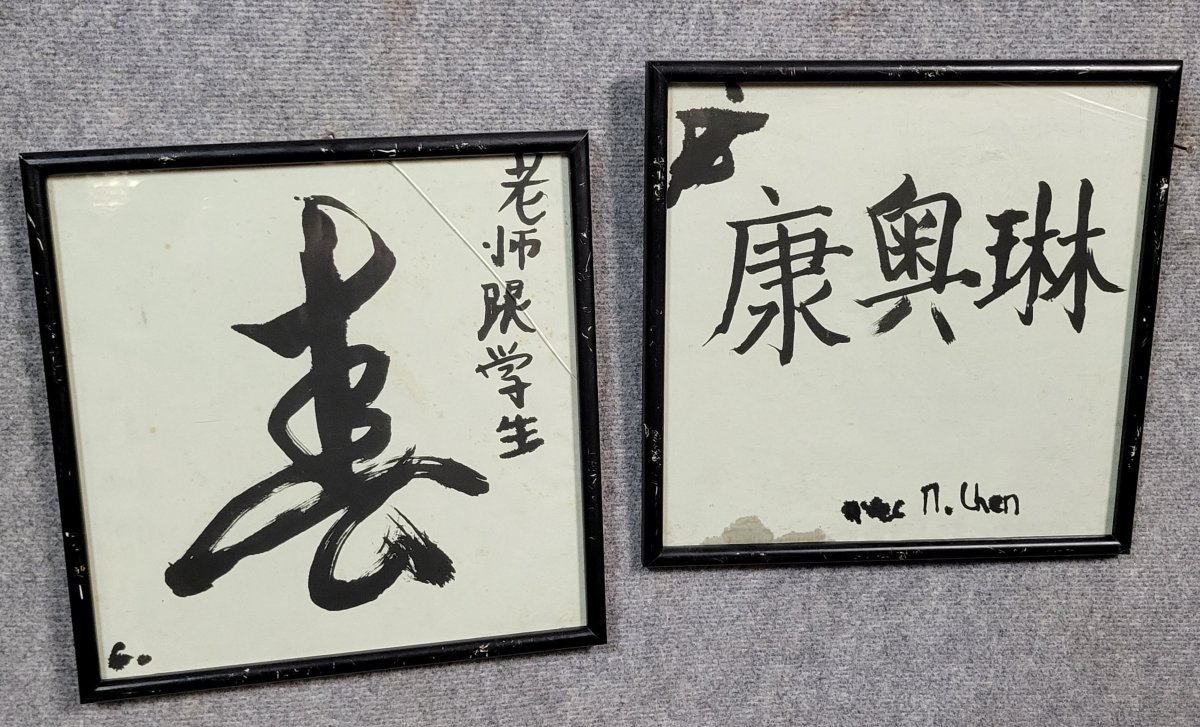 春
老师跟学生
康奥琳
avec M. Chen